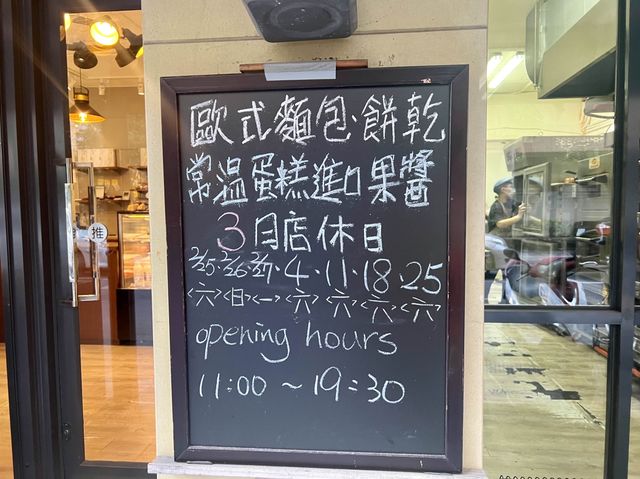 歐式麵包·餅乾
常溫蛋糕進口果醬
3月店休日
2/25·2/26·2/27·4·11·18·25
<六><日><一><六><六><六><六>
opening hours
11:00 ~ 19:30
推